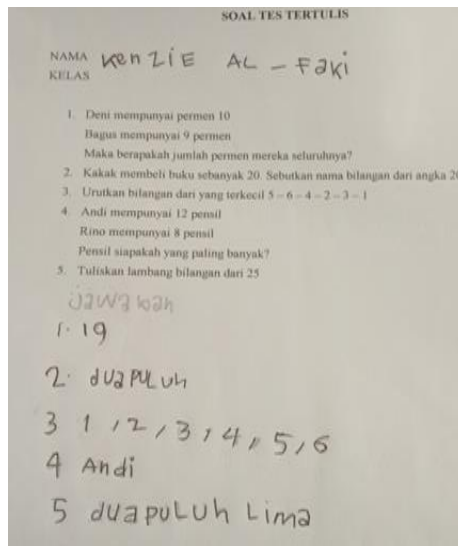 SOAL TES TERTULIS
NAMA Kenzie AL - Faki
KELAS
1. Deni mempunyai permen 10
Bagus mempunyai 9 permen
Maka berapakah jumlah permen mereka seluruhnya?
2. Kakak membeli buku sebanyak 20. Sebutkan nama bilangan dari angka 20
3. Urutkan bilangan dari yang terkecil 5 – 6 – 4 – 2 – 3 – 1
4. Andi mempunyai 12 pensil
Rino mempunyai 8 pensil
Pensil siapakah yang paling banyak?
5. Tuliskan lambang bilangan dari 25
Jawaban
1. 19
2. duapuluh
3 1, 2, 3, 4, 5, 6
4 Andi
5 duapuluh Lima